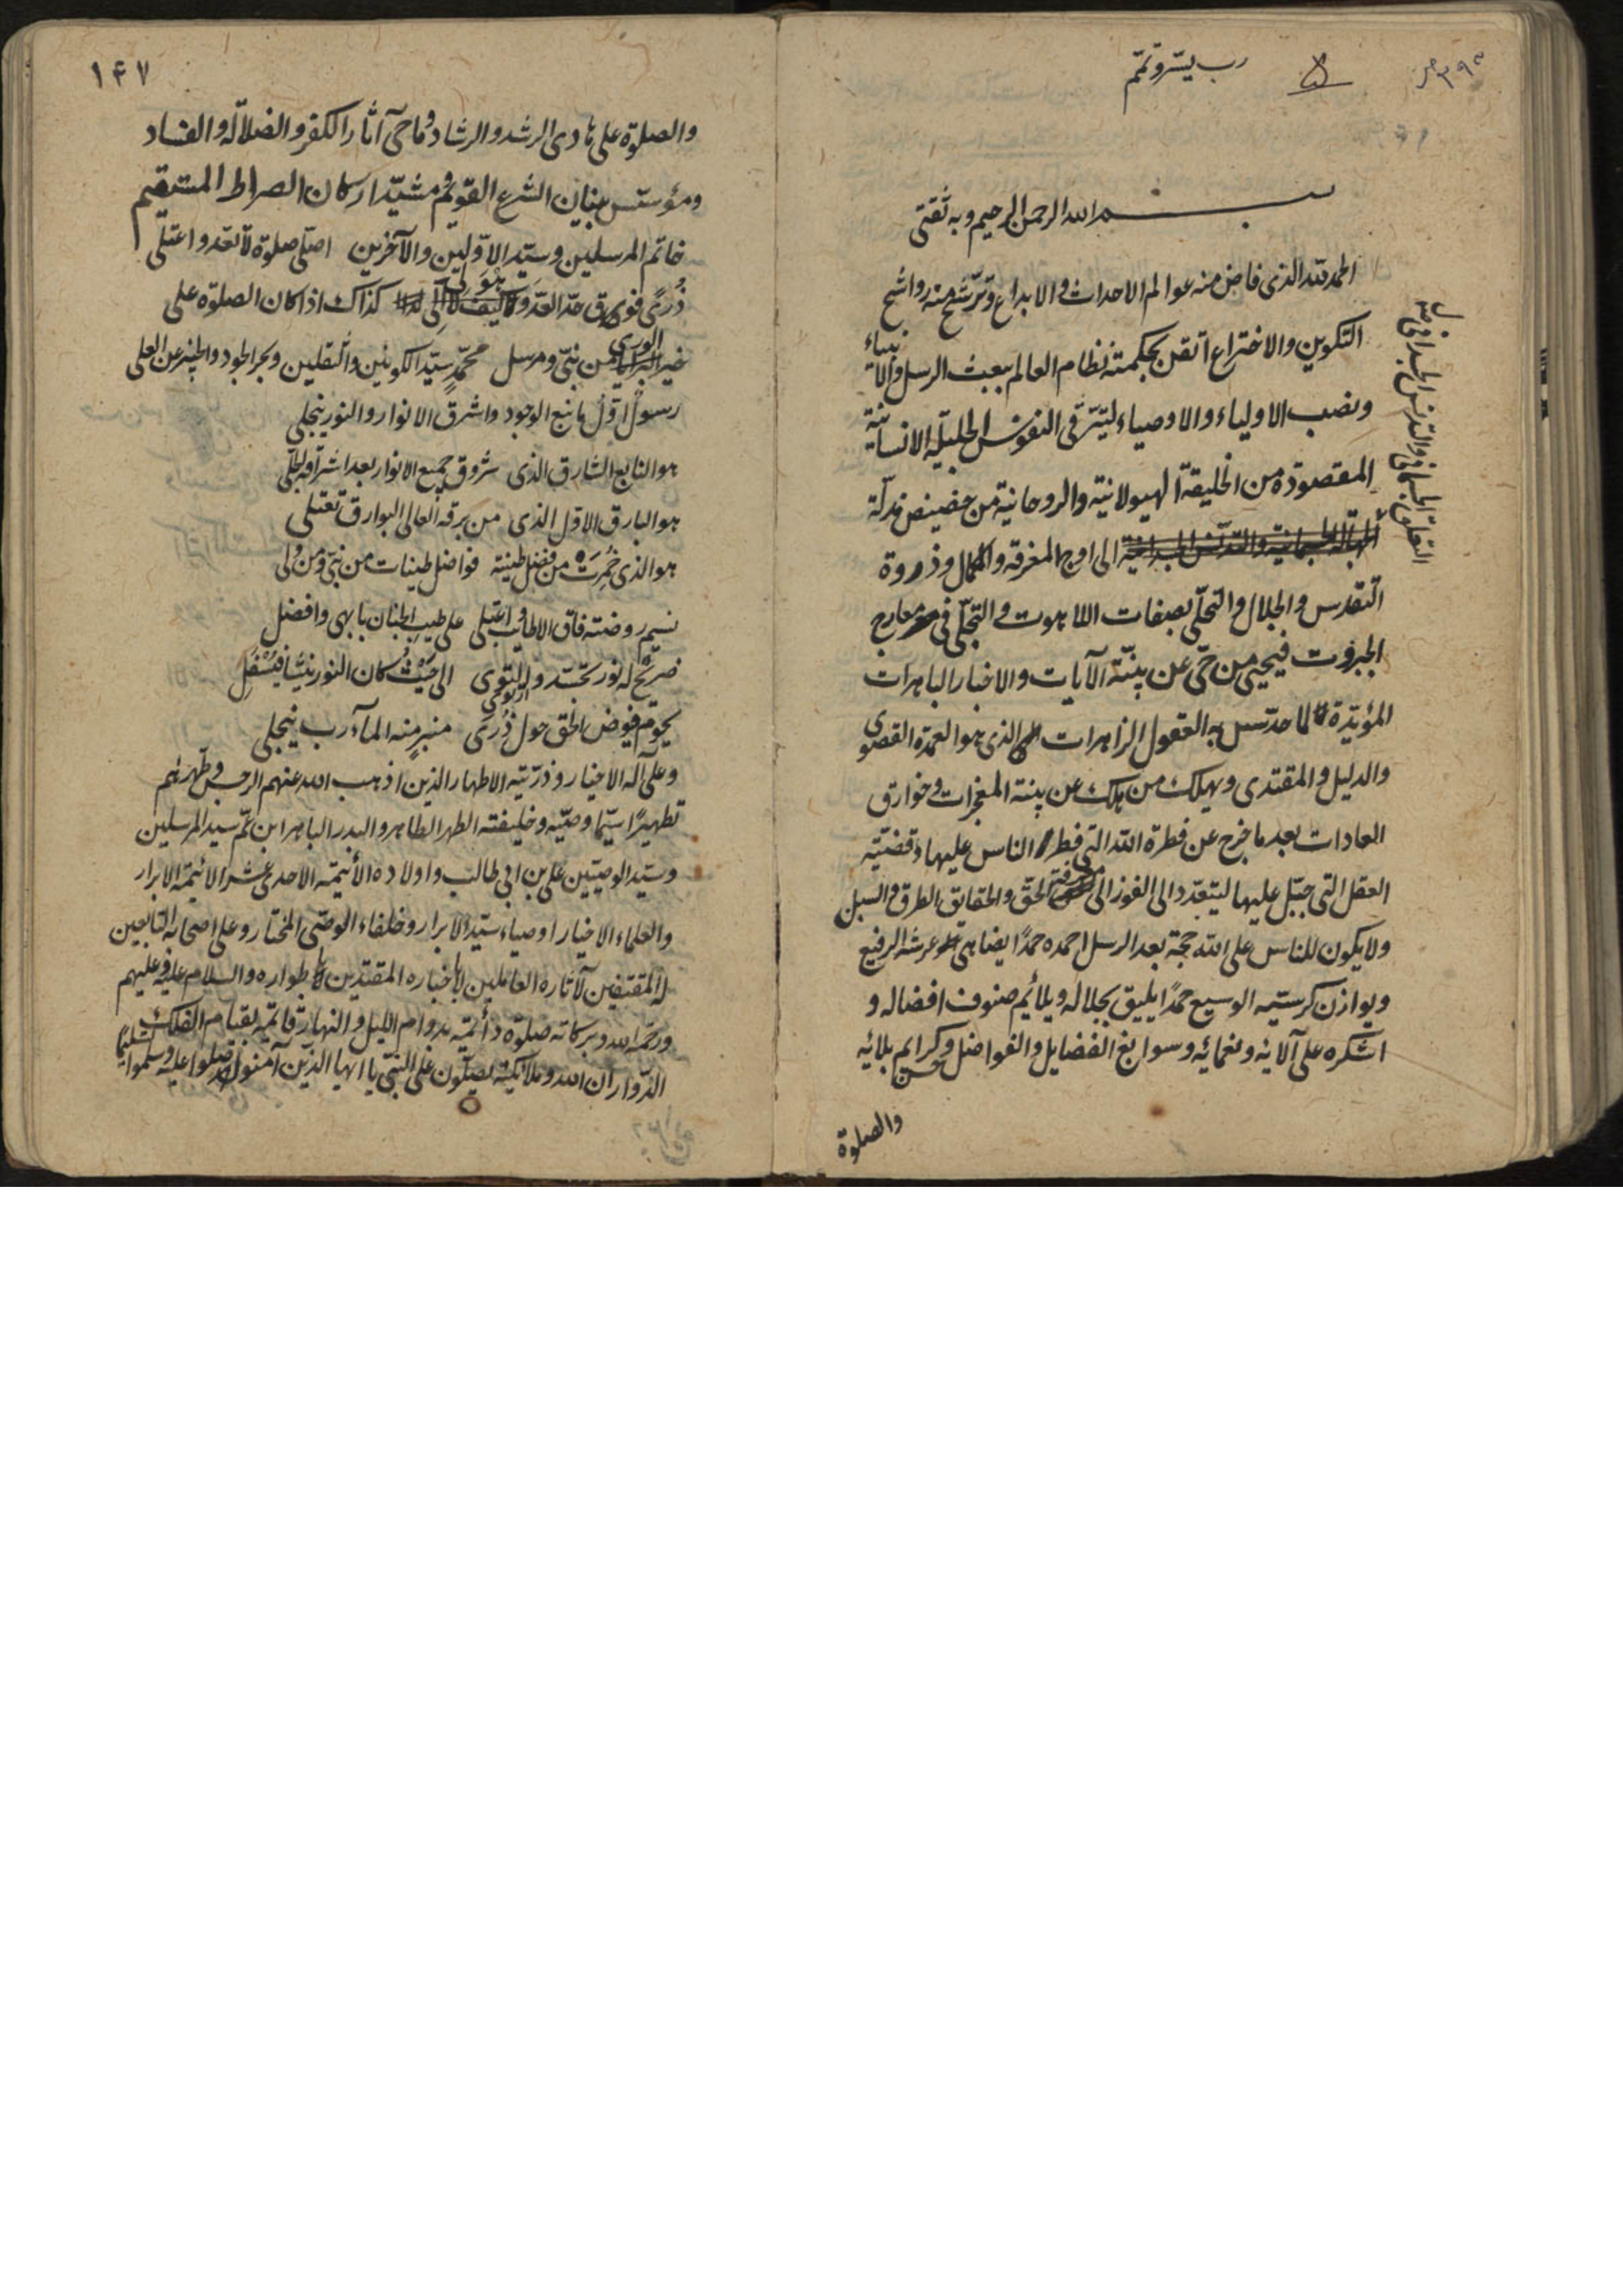 رب يسّر وتمّم
بسم الله الرحمن الرحيم وبه ثقتي
الحمد لله الذى فاض منه عوالم الاحداث والابداع وترشّح منه رواشح
التكوين والاختراع اتقن بحكمته نظام العالم ببعث الرسل والانبياء
ونصب الاولياء والاوصياء ليترقى النفوس الجليلة الانسانية
المقصودة من الخليقة الهيولانية والروحانية من حضيض مذلّة
الى اوج المعرفة والكمال وذروة
التقدس والجلال والتحلّى بصفات اللاهوت والتجلّى فى معارج
الجبروت فيحيى من حىّ عن بينّة الآيات والاخبار الباهرات
المؤيّدة لما حدّس به العقول الزاهرات الذى هو العمدة القصوى
والدليل والمقتدى ويهلك من هلك عن بينة المعجزات وخوارق
العادات بعد ما خرج عن فطرة الله التى فطر الناس عليها وقضيّة
العقل التى جبّل عليها ليتعدد الى الفوز الى معرفة الحقّ والحقايق الطرق والسبل
ولا يكون للناس على الله حجة بعد الرسل احمده حمدًا يضاهى عرشه الرفيع
ويوازن كرسيّه الوسيع حمدًا يليق بجلاله ويلائم صنوف افضاله و
اشكره على آلائه ونعمائه وسوابغ الفضايل والفواضل وكرايم بلائه
والصلوة
١٤٧
والصلوة على هادى الرشد والرشاد وماحى آثار الكفر والضلالة والفساد
ومؤسّس بنيان الشرع القويم ومشيّد اركان الصراط المستقيم
خاتم المرسلين وسيّد الاوّلين والآخرين اصلّى صلوة لا تعد واعتلى
ذُرىً فوق حدّ العدّ كذاك اذا كان الصلوة على
خير الورى من نبىّ ومرسل محمّدٍ سيّد الكونين والثقلين وبحر الجود والخير عن العلى
رسولٌ اوّل ما نبع الوجود واشرق الانوار والنور ينجلى
هو النابع الشارق الذى شروق جميع الانوار بعد اشراقه
هو البارق الاوّل الذى من برقه العالى البوارق تعتلى
هو الذى خُمِرَت من فضل طينته فواضل طينات من نبىّ ومن ولى
نسيم روضته فاق الاطايب واعتلى على طيب الجنان بابهى وافضل
ضريحٌ له نور تجسّد الى حيث كان النور
يحوم فيوض الحق حول ذُرى منبر منه المآرب ينجلى
وعلى آله الاخيار وذرّيته الاطهار الذين اذهب الله عنهم الرجس وطهرهم
تطهيرًا سيّما وصيّه وخليفته الطهر الطاهر والبدر الباهر ابن عمّ سيد المرسلين
وسيّد الوصيّين على بن ابى طالب واولاده الأئيمّه الاحدى عشر الائيمّة الابرار
والعلماء الاخيار اوصياء سيّد الابرار وخلفاء الوصى المختار وعلى اصحابه التابعين
له المقتفين لآثاره العاملين باخباره المقتدين باطواره والسلام عليه وعليهم
ورحمة الله وبركاته صلوة دائمة بدوام الليل والنهار قائمة بقيام الفلك
الدّوار ان الله وملائكته يصلّون على النبىّ يا ايها الذين آمنوا صلّوا عليه وسلموا تسليمًا